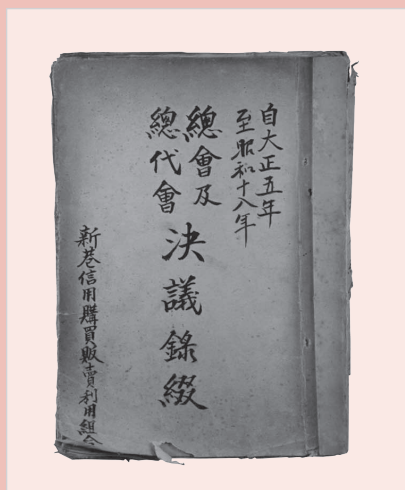 自大正五年
至昭和十八年
總會及
總代會
決議錄綴
新巷信用購買販賣利用組合